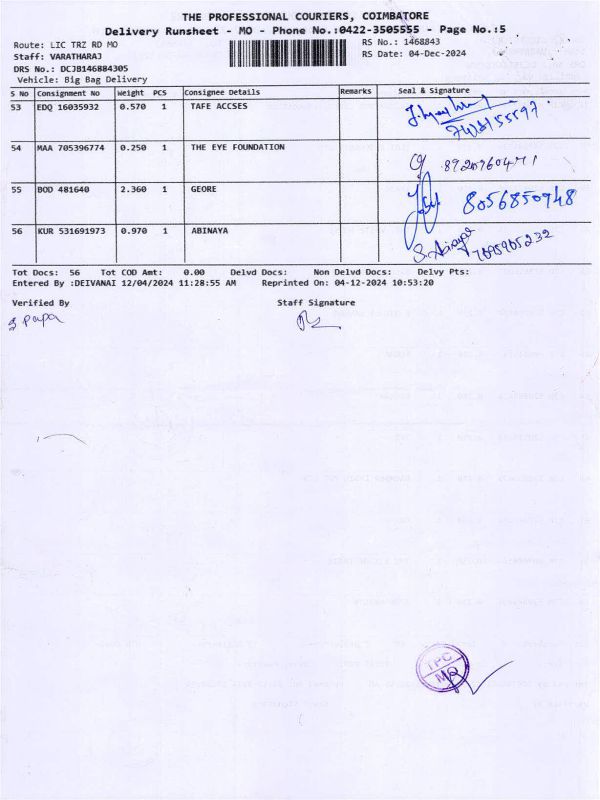 THE PROFESSIONAL COURIERS, COIMBATORE
Delivery Runsheet - MO - Phone No.:0422-3505555 - Page No.:5
Route: LIC TRZ RD MO RS No.: 1468843
Staff: VARATHARAJ RS Date: 04-Dec-2024
DRS No.: DCJB146884305
Vehicle: Big Bag Delivery
S No Consignment No Weight PCS Consignee Details Remarks Seal & Signature
53 EDQ 16035932 0.570 1 TAFE ACCSES
54 MAA 705396774 0.250 1 THE EYE FOUNDATION
55 BOD 481640 2.360 1 GEORE 8056850948
56 KUR 531691973 0.970 1 ABINAYA S. Abinaya
Tot Docs: 56 Tot COD Amt: 0.00 Delvd Docs: Non Delvd Docs: Delvy Pts:
Entered By :DEIVANAI 12/04/2024 11:28:55 AM Reprinted On: 04-12-2024 10:53:20
Verified By Staff Signature
papa
TPC
MO